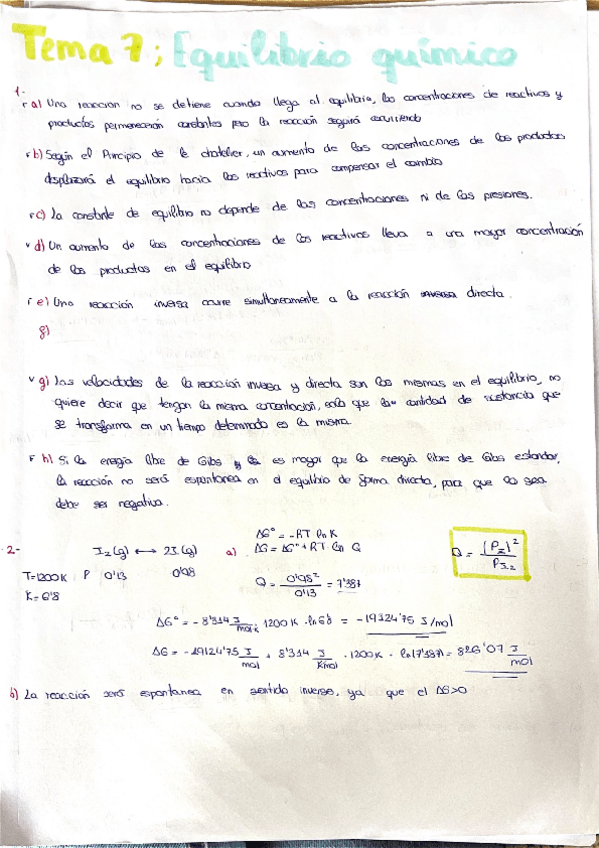 Tema 7; Equilibrio químico
1-
F a) Una reaccion no se detiene cuando llega al equilibrio, las concentraciones de reactivos y
productos permanecerán constantes pero la reacción seguirá ocurriendo
F b) Según el Principio de le chatelier, un aumento de las concentraciones de los productos
desplazará el equilibrio hacia los reactivos para compensar el cambio
F c) La constante de equilibrio no depende de las concentraciones ni de las presiones.
V d) Un aumento de las concentraciones de los reactivos lleva a una mayor concentración
de los productos en el equilibrio
F e) Una reacción inversa ocurre simultaneamente a la reacción inversa directa.
f)
V g) Las velocidades de la reaccion inversa y directa son las mismas en el equilibrio, no
quiere decir que tengan la misma concentración, solo que la cantidad de sustancia que
se transforma en un tiempo determinado es la misma.
F h) Si la energia libre de Gibs es mayor que la energia libre de Gibs estandar,
la reacción no será espontanea en el equilibrio de forma directa, para que lo sea
debe ser negativa.
2- I₂(g) ⟷ 2I(g) a) ΔG° = -RT ln K
ΔG = ΔG° + RT ln Q
Q = (P_I)² / P_I₂
T=1200K P 0'13 0'98
K= 6'8
Q = 0'98² / 0'13 = 7'387
ΔG° = - 8'314 J/mol·K · 1200K · ln 6'8 = -19124'75 J/mol
ΔG = -19124'75 J/mol + 8'314 J/Kmol · 1200K · ln(7'387) = 826'07 J/mol
b) La reacción será espontanea en sentido inverso, ya que el ΔG>0